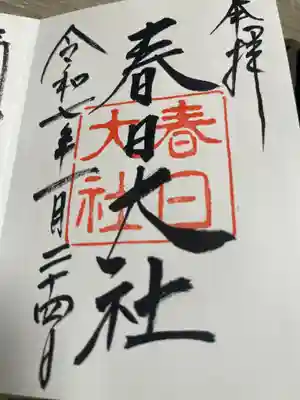 奉拝
春日大社
春日
大社
令和七年二月二十四日